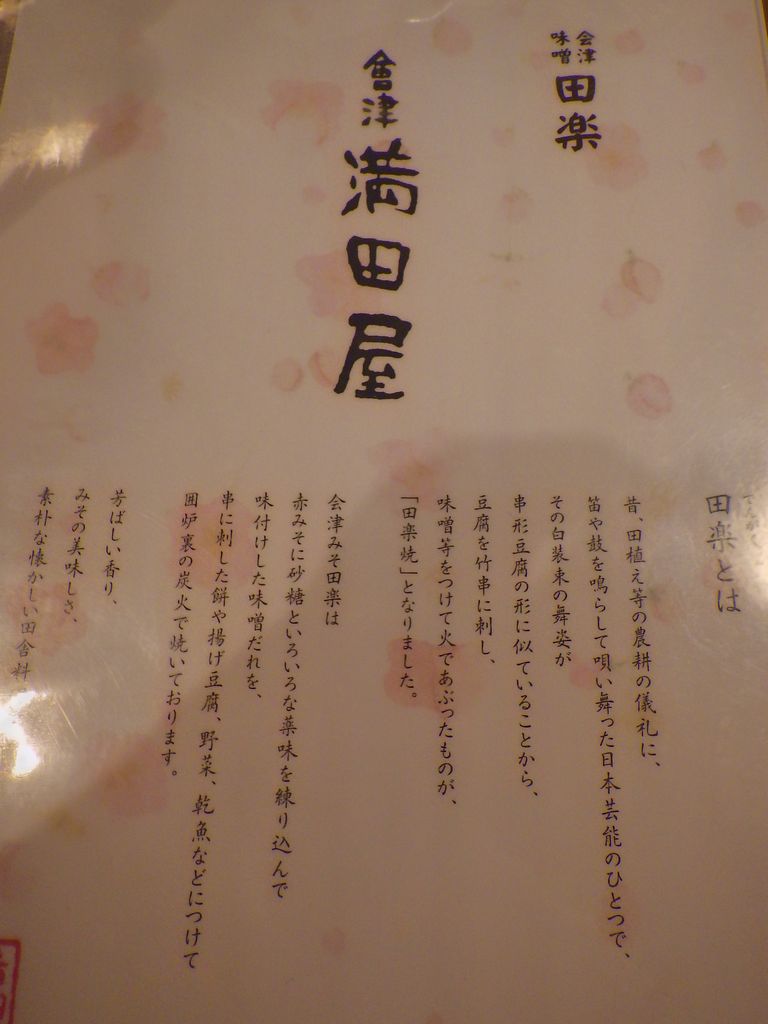 会津
味噌
田楽
會津
満田屋
でんがく
田楽とは
昔、田植え等の農耕の儀礼に、
笛や鼓を鳴らして唄い舞った日本芸能のひとつで、
その白装束の舞姿が
串形豆腐の形に似ていることから、
豆腐を竹串に刺し、
味噌等をつけて火であぶったものが、
「田楽焼」となりました。
会津みそ田楽は
赤みそに砂糖といろいろな薬味を練り込んで
味付けした味噌だれを、
串に刺した餅や揚げ豆腐、野菜、乾魚などにつけて
囲炉裏の炭火で焼いております。
芳ばしい香り、
みその美味しさ、
素朴な懐かしい田舎料